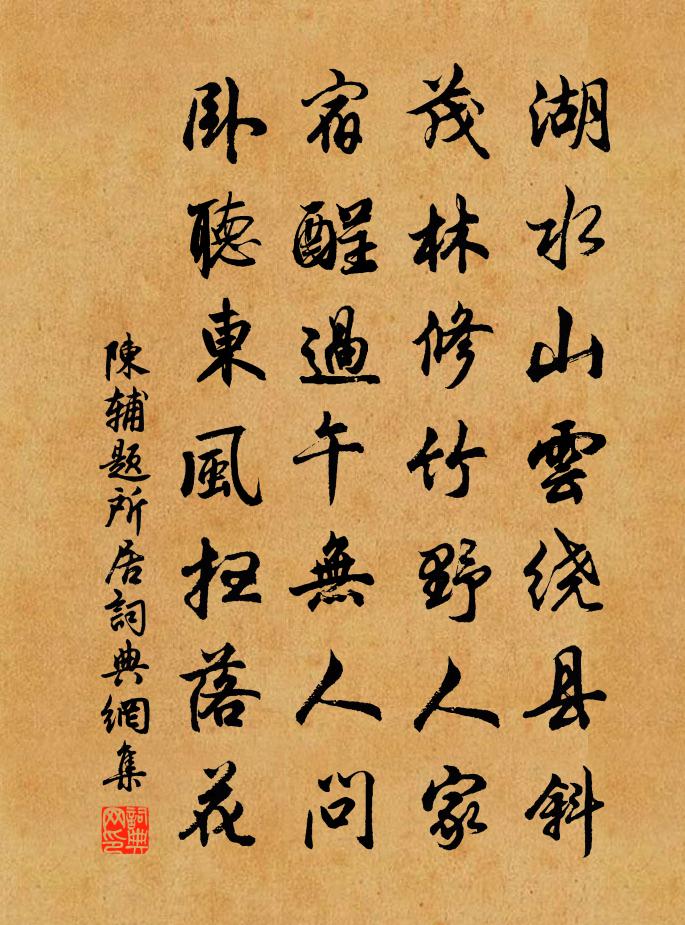 湖水山雲绕县斜
茂林修竹野人家
宿醒過午無人問
卧聽東風扫落花
陳辅题所居詞典網集
詞典网印